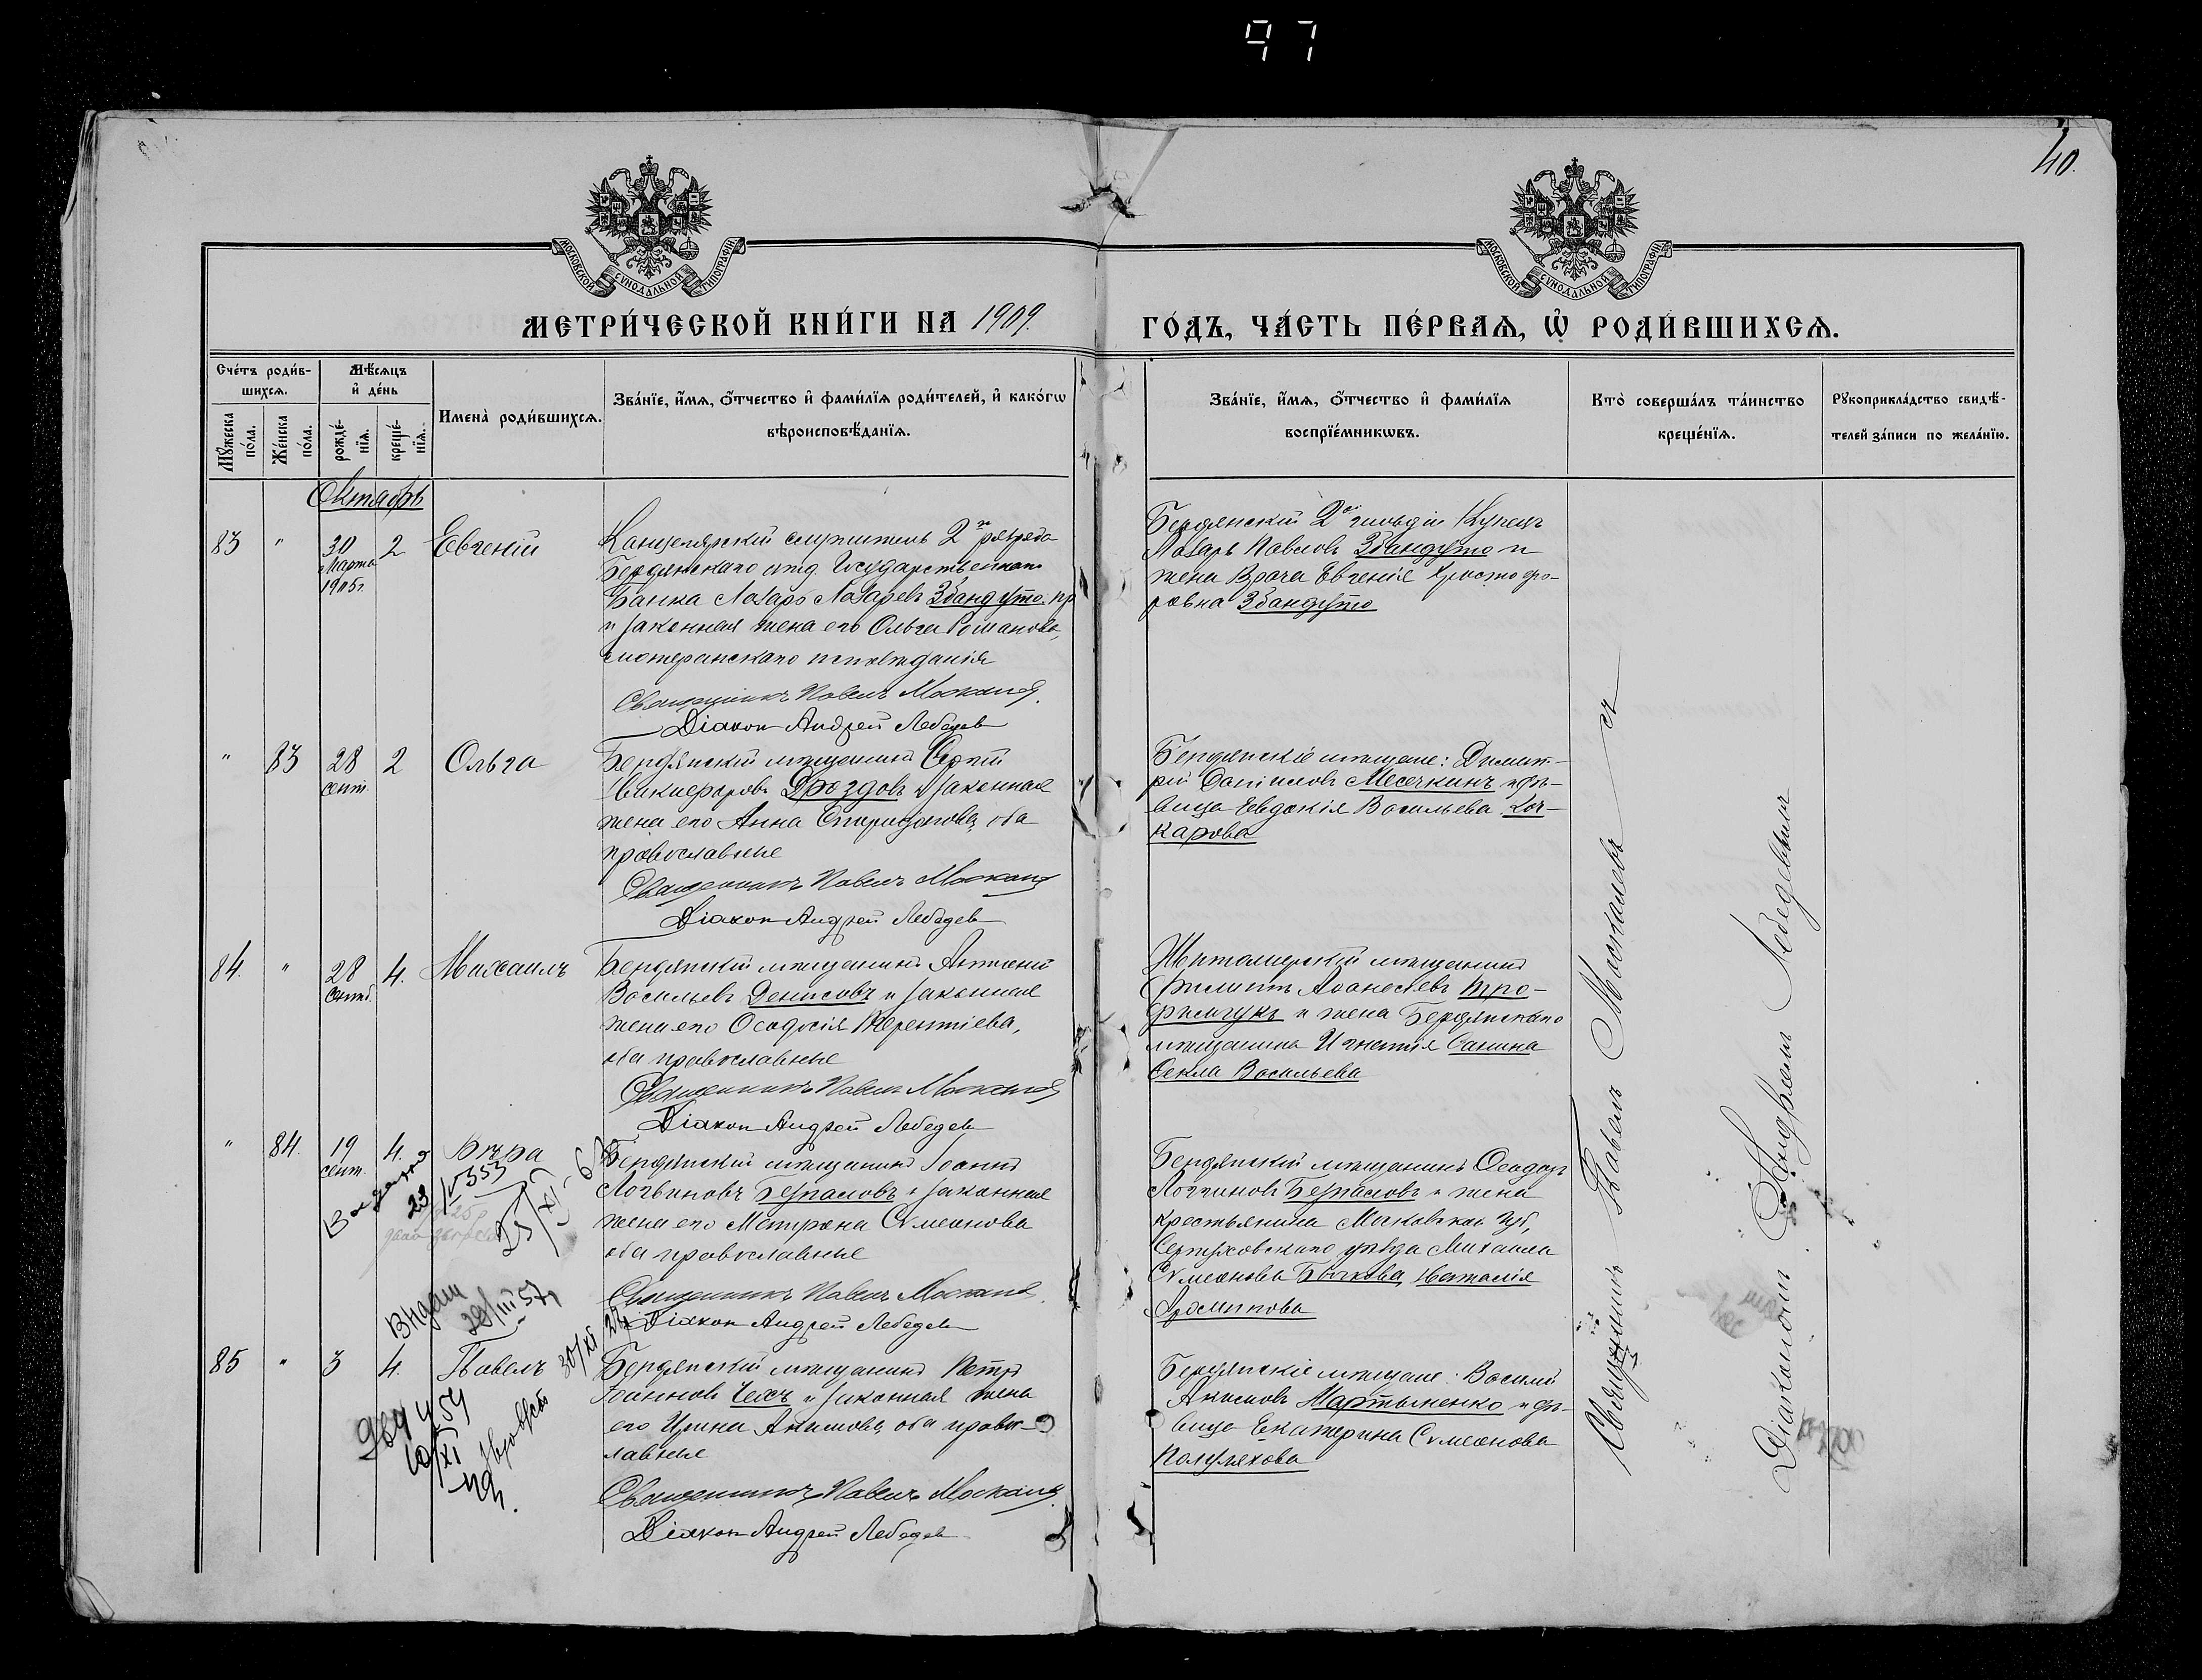 97
40.
МОСКОВСКОЙ СѴНОДАЛЬНОЙ ТИПОГРАФІИ
МОСКОВСКОЙ СѴНОДАЛЬНОЙ ТИПОГРАФІИ
МЕТРИ́ЧЕСКОЙ КНИ́ГИ НА 1909.
ГО́ДЪ, ЧА́СТЬ ПЕ́РВАѦ, Ѽ РОДИ́ВШИХСѦ.
Сче́тъ роди́в-
шихсѧ.
Мꙋ́жеска по́ла.
Же́нска по́ла.
Мѣ́сѧцъ
и҆ де́нь
рожде́-
нїѧ.
креще́-
нїѧ.
Имена̀ роди́вшихсѧ.
Зва́нїе, и҆́мѧ, ѻ҆́тчество и҆ фами́лїѧ роди́телей, и҆ како́гѡ
вѣроисповѣ́данїѧ.
Зва́нїе, и҆́мѧ, ѻ҆́тчество и҆ фами́лїѧ
воспрїе́мникѡвъ.
Кто̀ соверша́лъ та́инство
креще́нїѧ.
Рꙋкоприкла́дство свидѣ́-
телей за́писи по жела́нїю.
Октябрь
83 " 30 Марта 1905г. 2 Евгеній
Канцелярскій служитель 2го разряда
Бердянскаго отд. Государственнаго
Банка Лазарь Лазаревъ Збандуто пр
и законная жена его Ольга Романова,
лютеранскаго исповѣданія
Священникъ Павелъ Москалевъ.
Діакон Андрей Лебедев
Бердянскій 2й гильдіи Купецъ
Лазарь Павловъ Збандуто и
жена Врача Евгенія Христофо-
ровна Збандуто
" 83 28 сент. 2 Ольга
Бердянскій мѣщанинъ Сергій
Никифоровъ Дроздовъ и законная
жена его Анна Спиридонова, оба
православные
Священникъ Павелъ Москалевъ
Діакон Андрей Лебедев
Бердянскіе мѣщане: Димит-
рій Даніиловъ Месечкинъ и дѣ-
вица Евдокія Васильева
карова
84. " 28 Сентяб. 4. Михаилъ
Бердянскій мѣщанинъ Антоній
Васильевъ Денисовъ и законная
жена его Ѳеодосія Терентіева,
оба православные
Священникъ Павелъ Москалевъ
Діакон Андрей Лебедев
Житомирскій мѣщанинъ
Филиппъ Аѳанасіевъ Тро-
фимчукъ и жена Бердянскаго
мѣщанина Игнатія Санина
Ѳекла Васильева
" 84. 19 сент. 4. Вѣра
Бердянскій мѣщанинъ Іоаннъ
Логвиновъ Безпаловъ и законная
жена его Матрона Сѵмеонова
оба православные
Священникъ Павелъ Москалевъ
Діакон Андрей Лебедев
Бердянскій мѣщанинъ Ѳеодоръ
Логгиновъ Безпаловъ и жена
крестьянина Московской губ,
Серпуховскаго уѣзда Михаила
Сѵмеонова Быкова, Наталія
23/IV 353
25/XI
28/III 57
85 " 3 4. Павелъ
Бердянскій мѣщанинъ Петръ
Іоанновъ Чехъ и законная жена
его Ирина Акимова, оба право-
славные
Священникъ Павелъ Москалевъ
Діакон Андрей Лебедев
Бердянскіе мѣщане: Василій
Акимовъ Мартыненко и дѣ-
вица Екатерина Сѵмеонова
Полуляхова
30/XI
10/XI
Священникъ Павелъ Москалевъ съ
Діакономъ Андреемъ Лебедевымъ